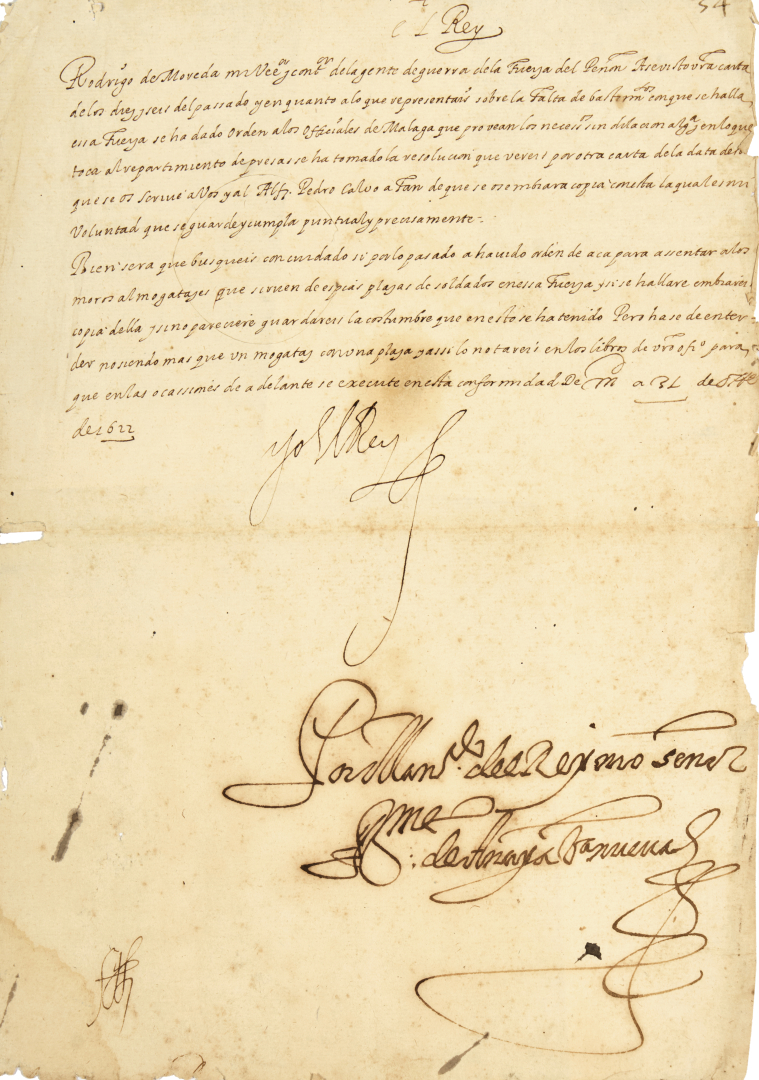 54
el Rey
Rodrigo de Moreda mi Vee.or y cont.or dela gente de guerra dela Fuerça del Peñon Ase visto vra carta
delos diez y seis del passado y en quanto a lo que representais sobre la Falta de bastim.tos con que se halla
essa Fuerça se ha dado orden a los officiales de Malaga que provean los necess.os sin dilacion alg.a en lo que
toca al repartimiento de presas se ha tomado la resolucion que vereis por otra carta de la data desta
que se os scrive a Vos y al Alf.z Pedro Calvo a Fin de que se os embiara copia la qual es mi
Voluntad que se guarde y cumpla puntual y precisamente.
Bien sera que busqueis con cuidado si por lo pasado a havido orden de aca para assentar a los
moros almogatajes que sirven de espias plaças de soldados en essa Fuerça y si se hallare embiareis
copia della y si no pareciere guardareis la costumbre que en esto se ha tenido Pero hase de enten-
der no siendo mas que un mogataz con una plaça y assi lo notareis en los libros de vro offi.o para
que en las ocassiones de adelante se execute en esta conformidad De M.d a 31 de
de 1622
Yo el Rey
Por Man.do del Rey nro señor
Br.me
de Anaya Villanueva